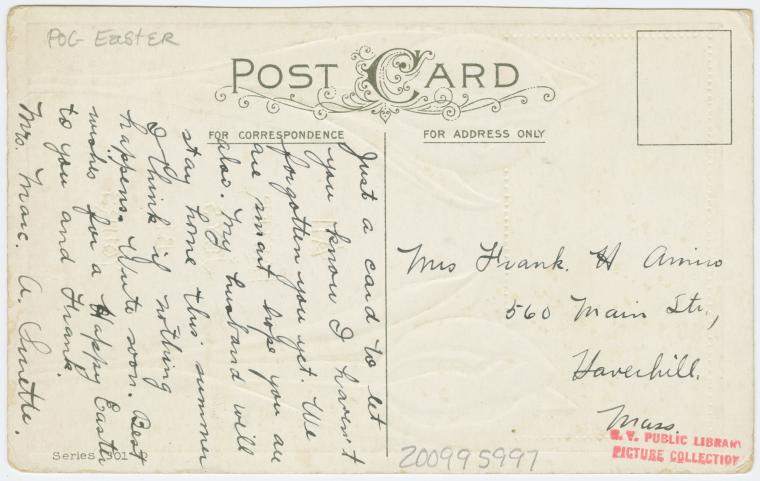 POG EASTER
POST CARD
FOR CORRESPONDENCE
FOR ADDRESS ONLY
Just a card to let
you know I haven't
forgotten you yet. We
are smart hope you are
also. My husband will
stay home this summer
I think if nothing
happens. Write soon. Best
wishes for a Happy Easter
to you and Frank.
Mrs. Marc. A.
Mrs Frank. H Amiro
560 Main Str.,
Haverhill,
Mass.
Series 301
200995997
N. Y. PUBLIC LIBRARY
PICTURE COLLECTION